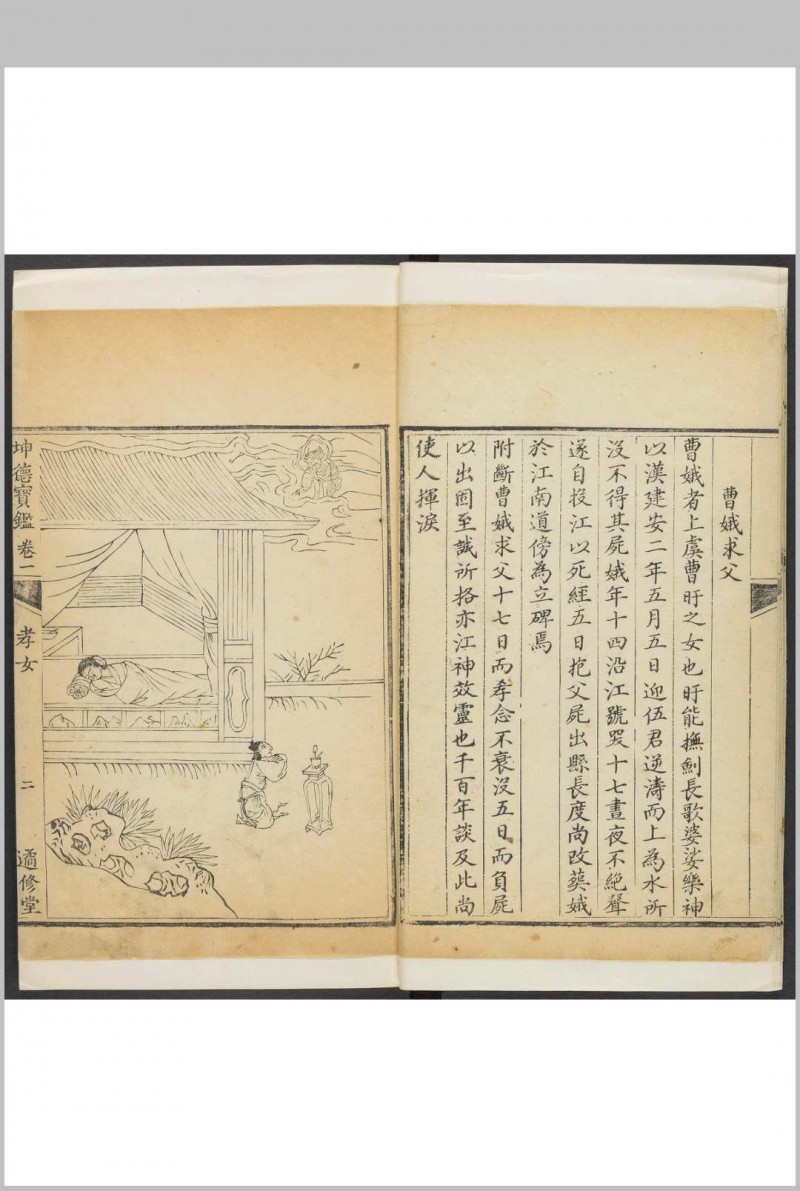 曹娥求父
曹娥者上虞曹盱之女也盱能撫劍長歌婆娑樂神
以漢建安二年五月五日迎伍君逆濤而上為水所
沒不得其屍娥年十四沿江號哭十七晝夜不絕聲
遂自投江以死經五日抱父屍出縣長度尚改葬娥
於江南道傍為立碑焉
附斷曹娥求父十七日而孝念不衰沒五日而負屍
以出固至誠所格亦江神效靈也千百年談及此尚
使人揮淚
坤德寶鑑 卷一 孝女 二 遹修堂